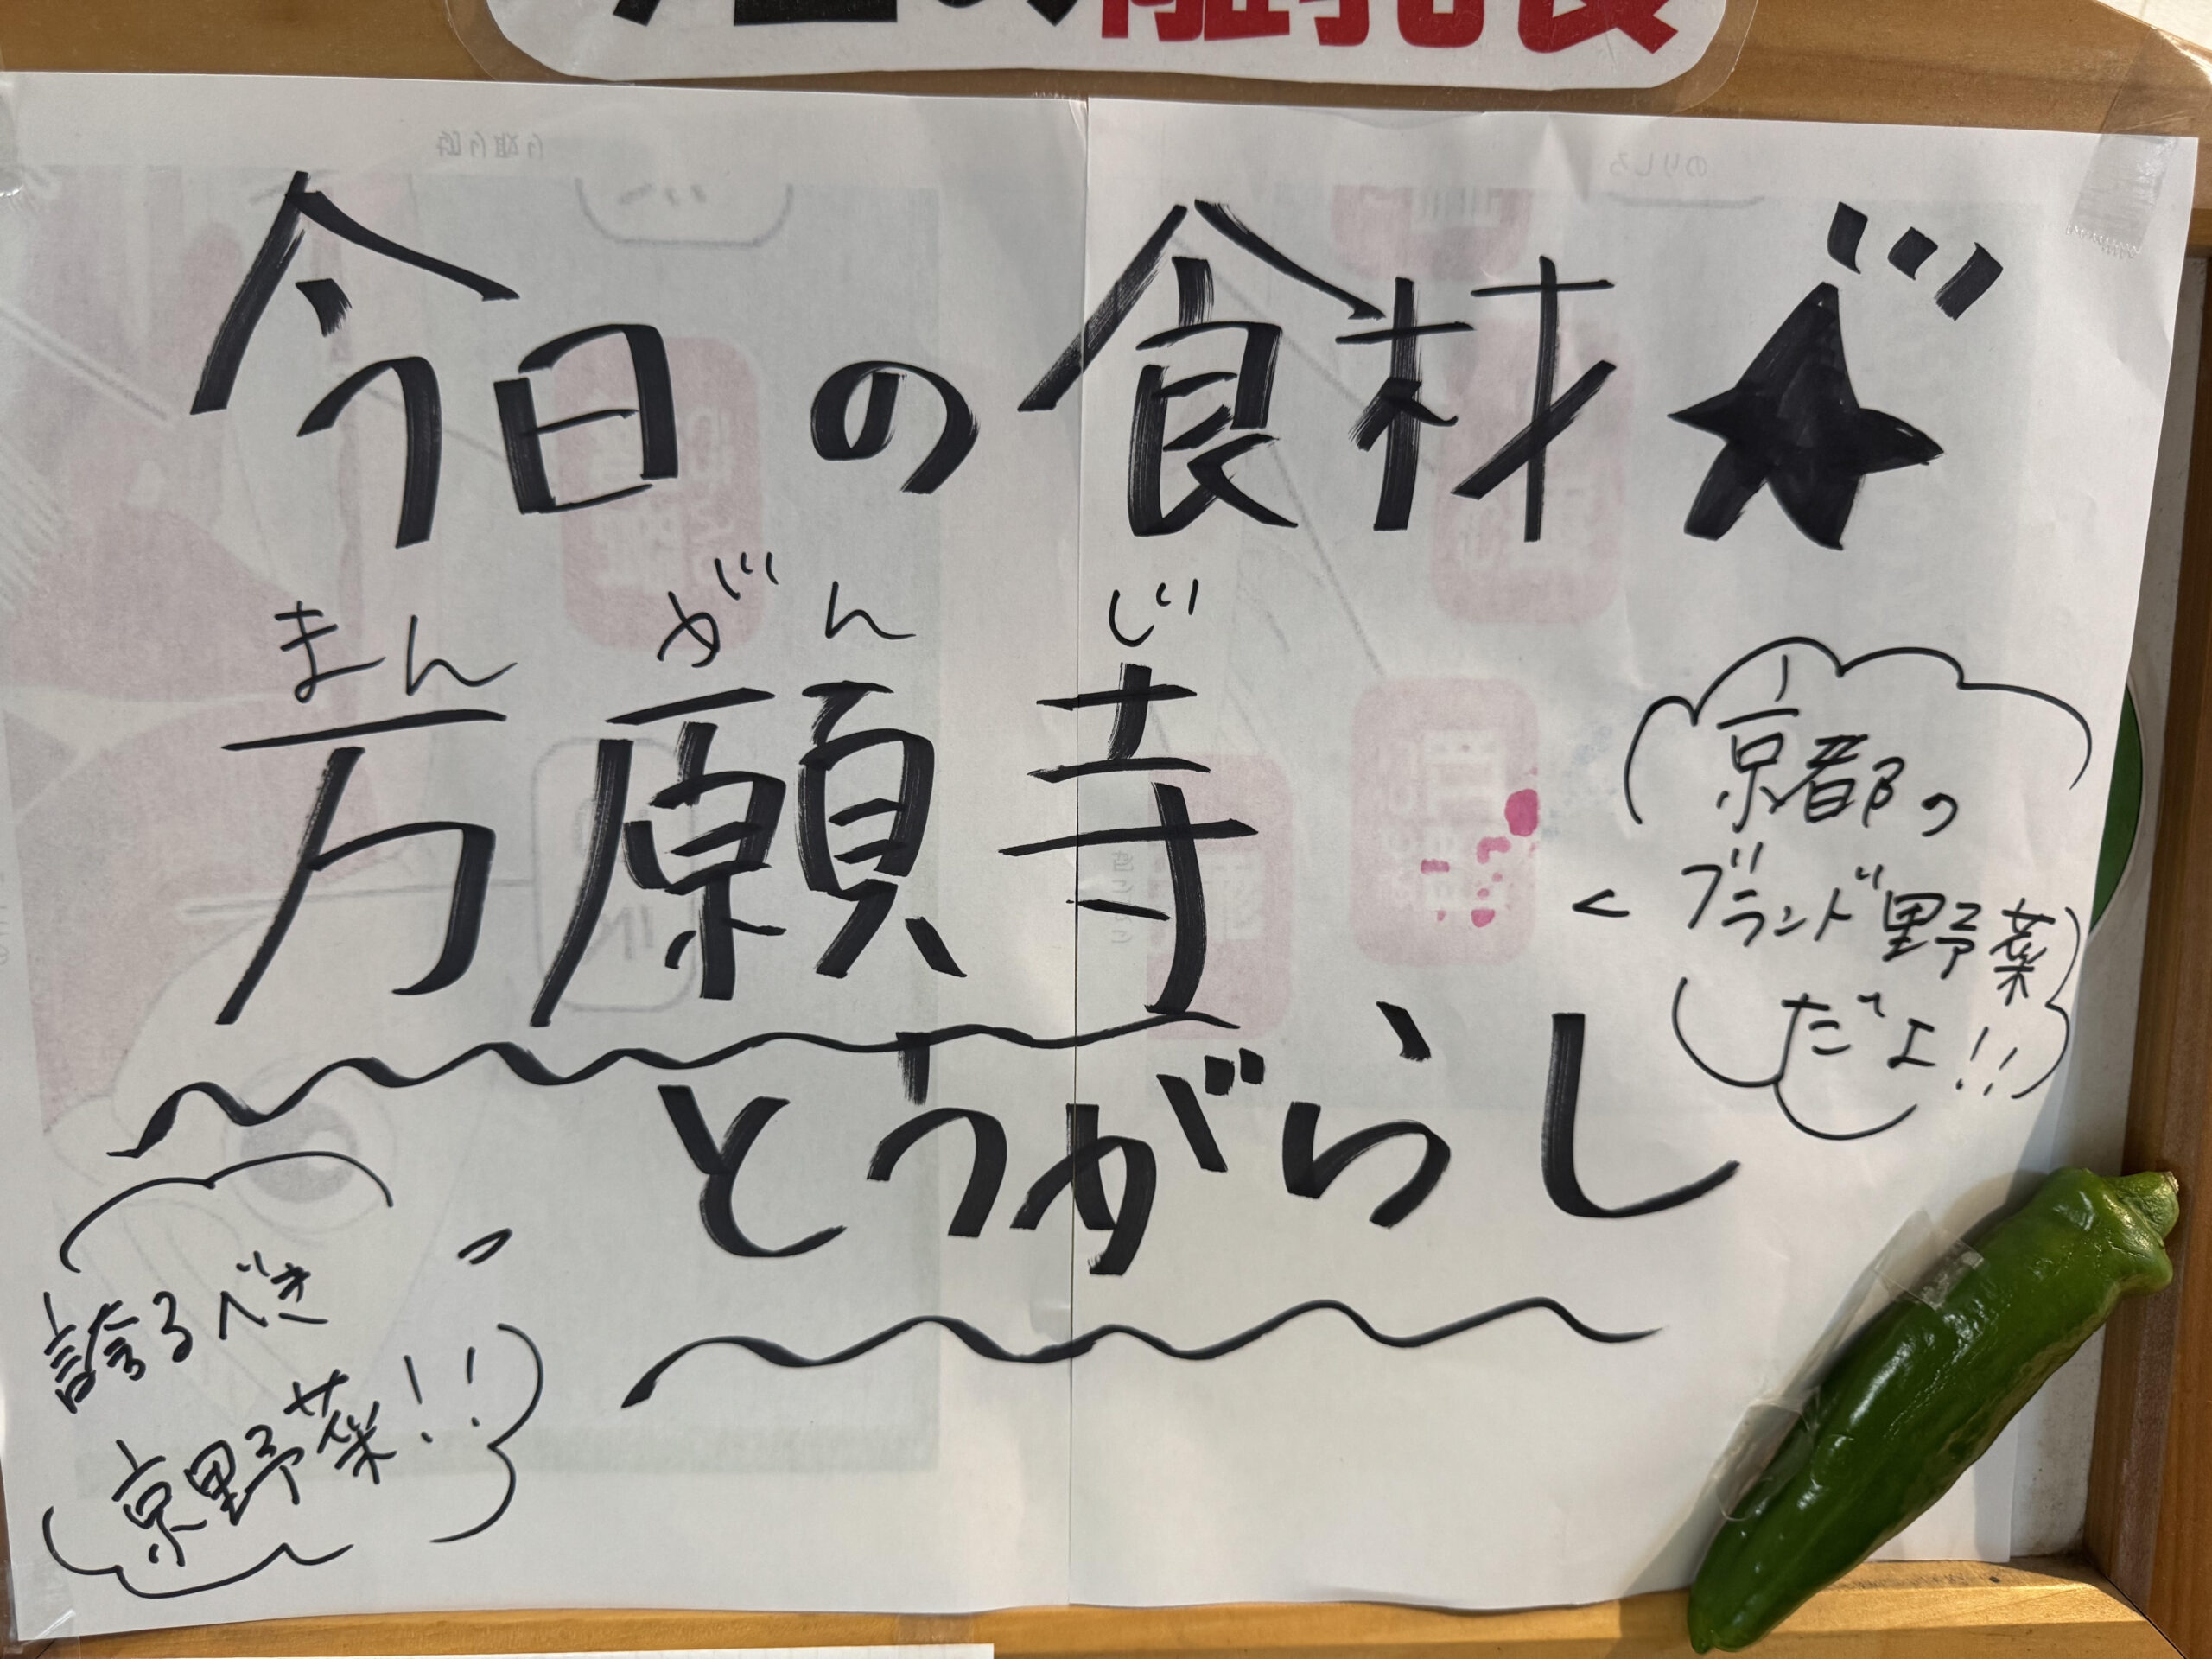 今日の食材★
まんがんじ
万願寺
とうがらし
京都の
ブランド野菜
だよ!!
誇るべき
京野菜!!